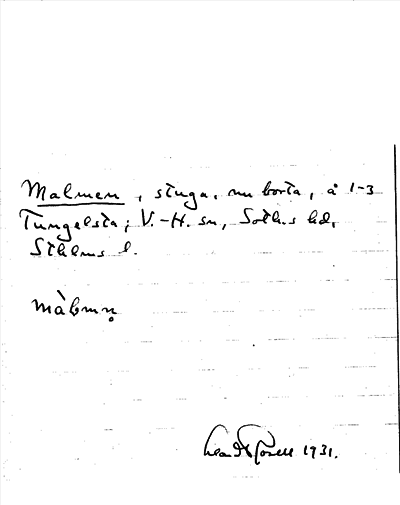 Malmen, stuga, nu borta, å 1-3
Tungelsta; V.-H. sn, Soth.s hd,
Sthlms l.
màlmn̥
1931.